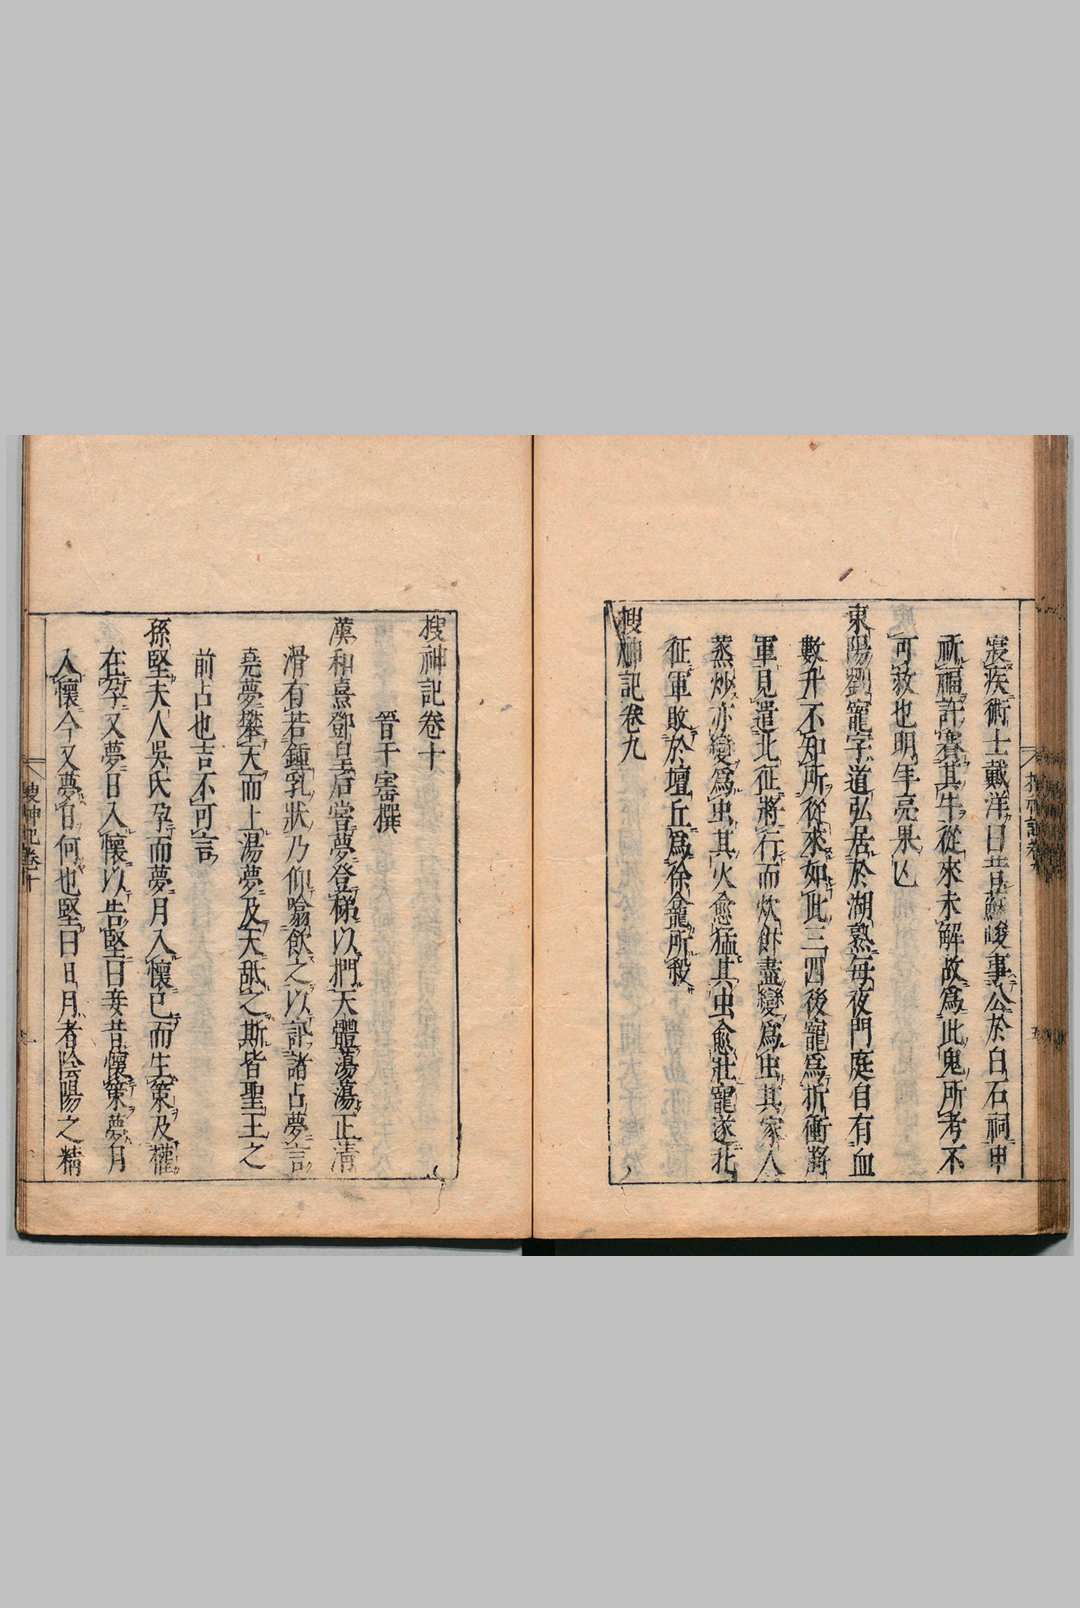 寢疾術士戴洋曰昔蘇峻事公於白石祠中
祈福許賽其牛從來未解故爲此鬼所考不
可救也明年亮果亡
東陽劉寵字道弘居於湖熟每夜門庭自有血
數升不知所從來如此三四後寵爲折衝將
軍見遣北征將行而炊飰盡變爲虫其家人
蒸炒亦變爲虫其火愈猛其虫愈壯寵遂北
征軍敗於壇丘爲徐龕所殺
搜神記卷九
搜神記卷十
晉干寶撰
漢和熹鄧皇后嘗夢登梯以捫天體蕩蕩正清
滑有若鍾乳狀乃仰噏飲之以訊諸占夢言
堯夢攀天而上湯夢及天舐之斯皆聖王之
前占也吉不可言
孫堅夫人吳氏孕而夢月入懷已而生策及權
在孕又夢日入懷以告堅曰妾昔懷策夢月
入懷今又夢日何也堅曰日月者陰陽之精
搜神記卷十